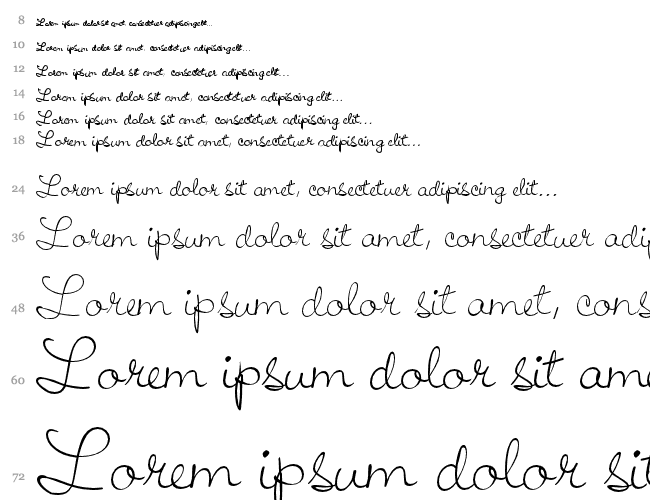 8 Lorem ipsum dolor sit amet, consectetuer adipiscing elit...
10 Lorem ipsum dolor sit amet, consectetuer adipiscing elit...
12 Lorem ipsum dolor sit amet, consectetuer adipiscing elit...
14 Lorem ipsum dolor sit amet, consectetuer adipiscing elit...
16 Lorem ipsum dolor sit amet, consectetuer adipiscing elit...
18 Lorem ipsum dolor sit amet, consectetuer adipiscing elit...
24 Lorem ipsum dolor sit amet, consectetuer adipiscing elit...
36 Lorem ipsum dolor sit amet, consectetuer adip
48 Lorem ipsum dolor sit amet, cons
60 Lorem ipsum dolor sit am
72 Lorem ipsum dolor sit